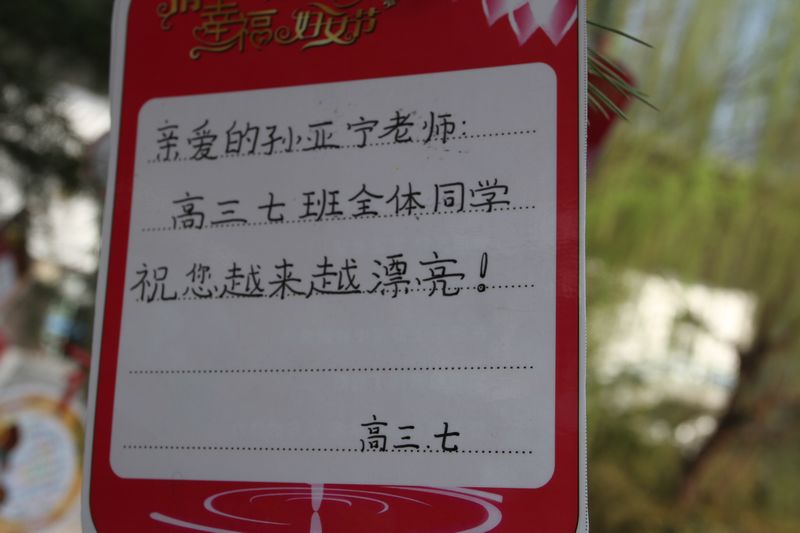 幸福妇女节
亲爱的孙亚宁老师:
高三七班全体同学
祝您越来越漂亮!
高三.七